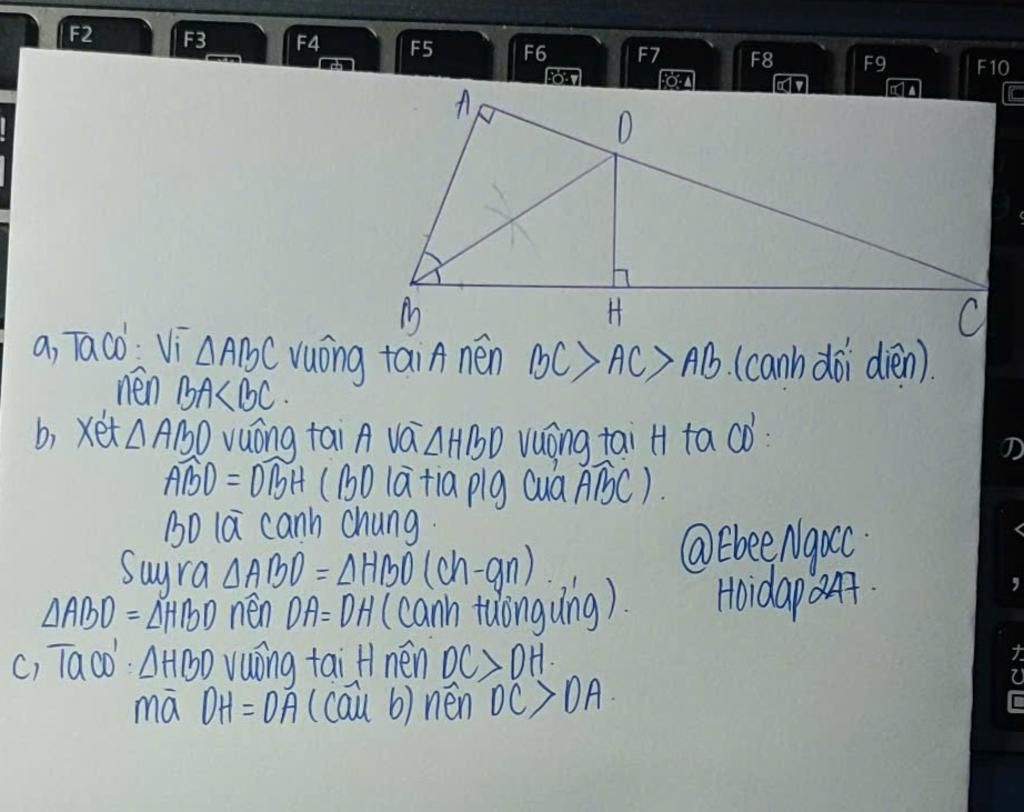 F2 F3 F4 F5 F6 F7 F8 F9 F10
A
D
B H C
a, Ta có: Vì ΔABC vuông tại A nên BC > AC > AB. (cạnh đối diện).
nên BA < BC.
b, Xét ΔABD vuông tại A và ΔHBD vuông tại H ta có:
ABD = DBH (BD là tia p/g của ABC).
BD là cạnh chung.
Suy ra ΔABD = ΔHBD (ch-gn).
@EbeeNgocc.
Hoidap247.
ΔABD = ΔHBD nên DA = DH (cạnh tương ứng).
c, Ta có: ΔHBD vuông tại H nên DC > DH.
mà DH = DA (câu b) nên DC > DA.